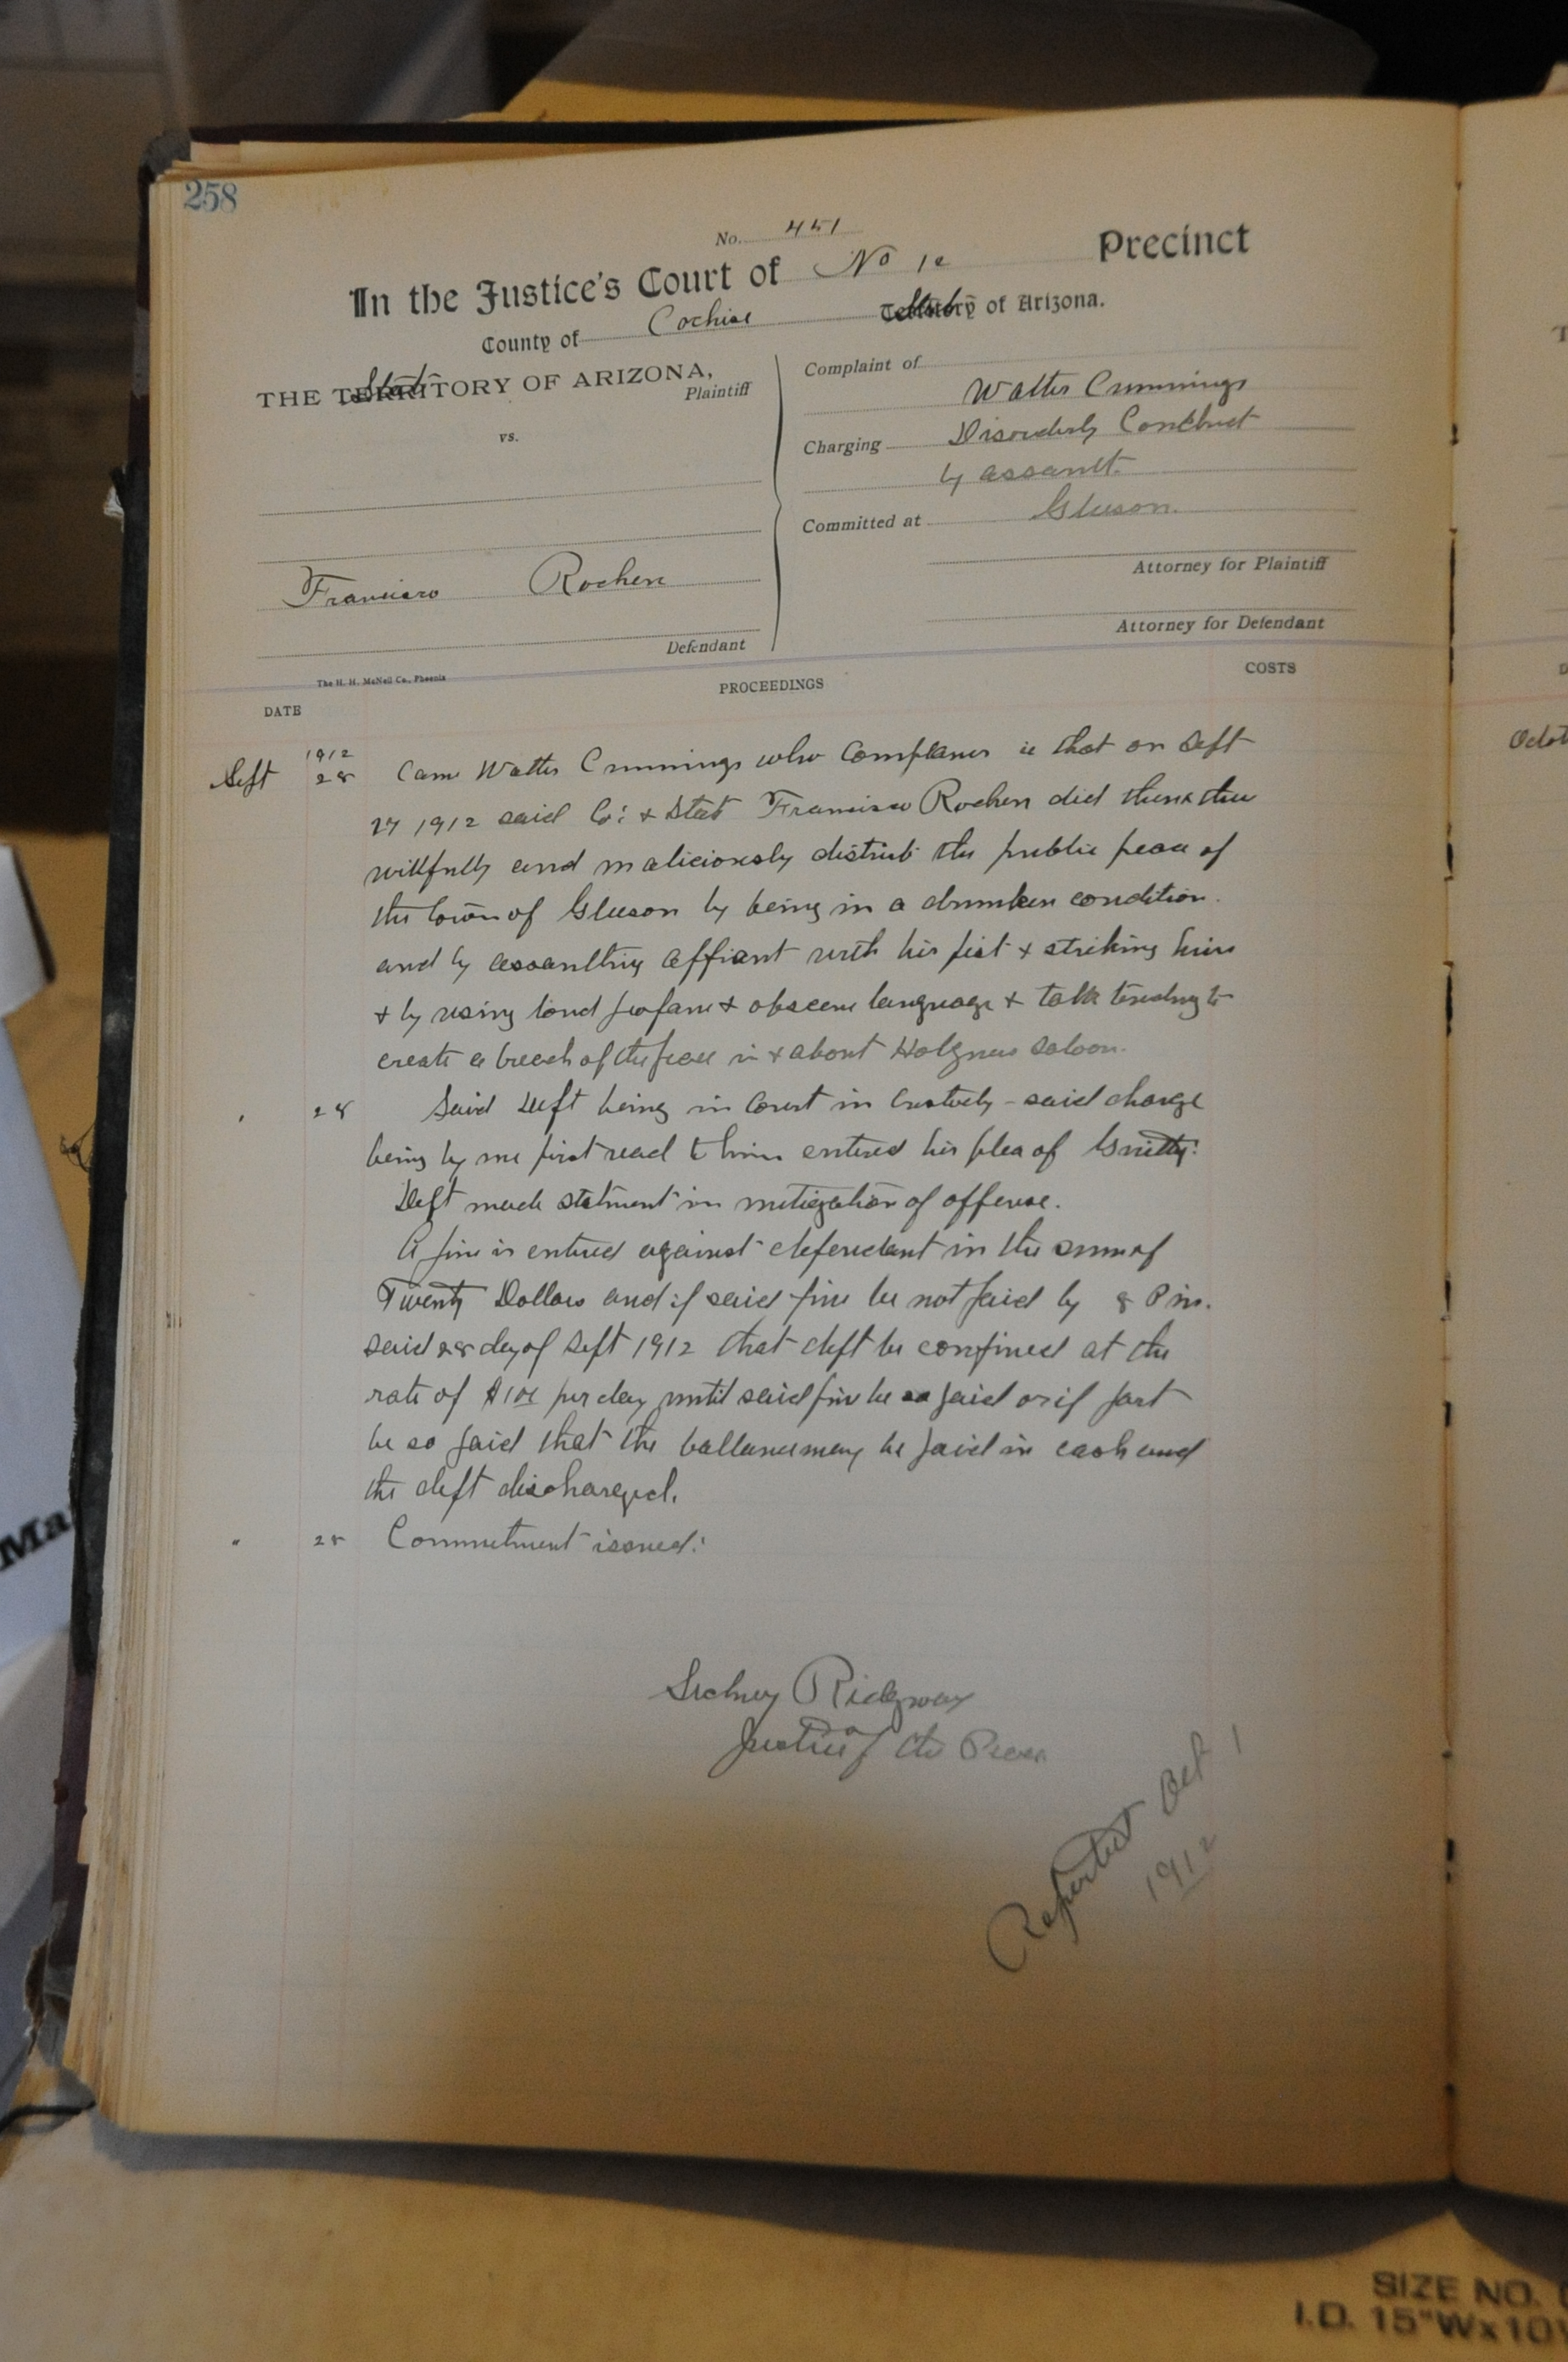 258
No. 451
In the Justice's Court of No 10 Precinct
County of Cochise State of Arizona.
THE State OF ARIZONA,
Plaintiff
vs.
Francisco Rochen
Defendant
Complaint of
Walter Cummings
Charging Disorderly Conduct
by assault
Committed at Gleeson.
Attorney for Plaintiff
Attorney for Defendant
The H. H. McNeil Co., Phoenix
DATE PROCEEDINGS COSTS
1912
Sept 28 Came Walter Cummings who complains that on Sept
27 1912 said Co: & State Francisco Rochen did then & there
willfully and maliciously distrub the public peace of
the town of Gleeson by being in a drunken condition.
and by assaulting affiant with his fist & striking him
& by using loud profane & obscene language & talk tending to
create a breach of the peace in & about saloon.
" 28 Said Deft being in Court in Custody - said charge
being by me first read to him entered his plea of Guilty:
Deft made statment in mitigation of offense.
A fine is entered against defendant in the sum of
Twenty Dollars and if said fine be not paid by 8 P.m.
said 28 day of Sept 1912 that deft be confined at the
rate of $1.00 per day until said fine be so paid or if part
be so paid that the ballance may be paid in cash and
the deft discharged.
" 28 Commitment issued:
Sidney Ridgway
Justice of the Peace
Reported Oct 1
1912
Ma
SIZE NO.
I.D. 15"W x 10